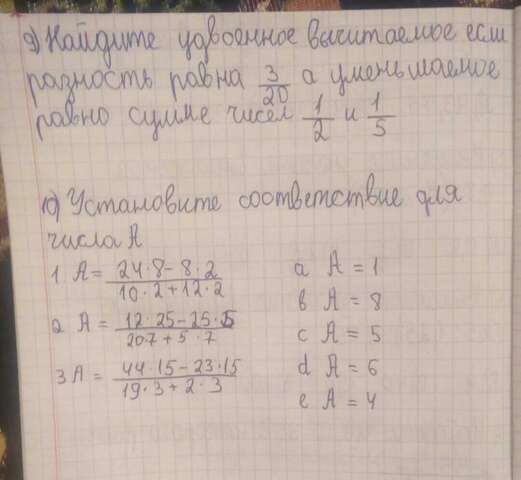 9) Найдите удвоенное вычитаемое если
разность равна 3/20 а уменьшаемое
равно сумме чисел 1/2 и 1/5
10) Установите соответствие для
числа А
1 A = (24·8 - 8·2)/(10·2 + 12·2) a A = 1
b A = 8
2 A = (12·25 - 25·5)/(20·7 + 5·7) c A = 5
3 A = (44·15 - 23·15)/(19·3 + 2·3) d A = 6
e A = 4